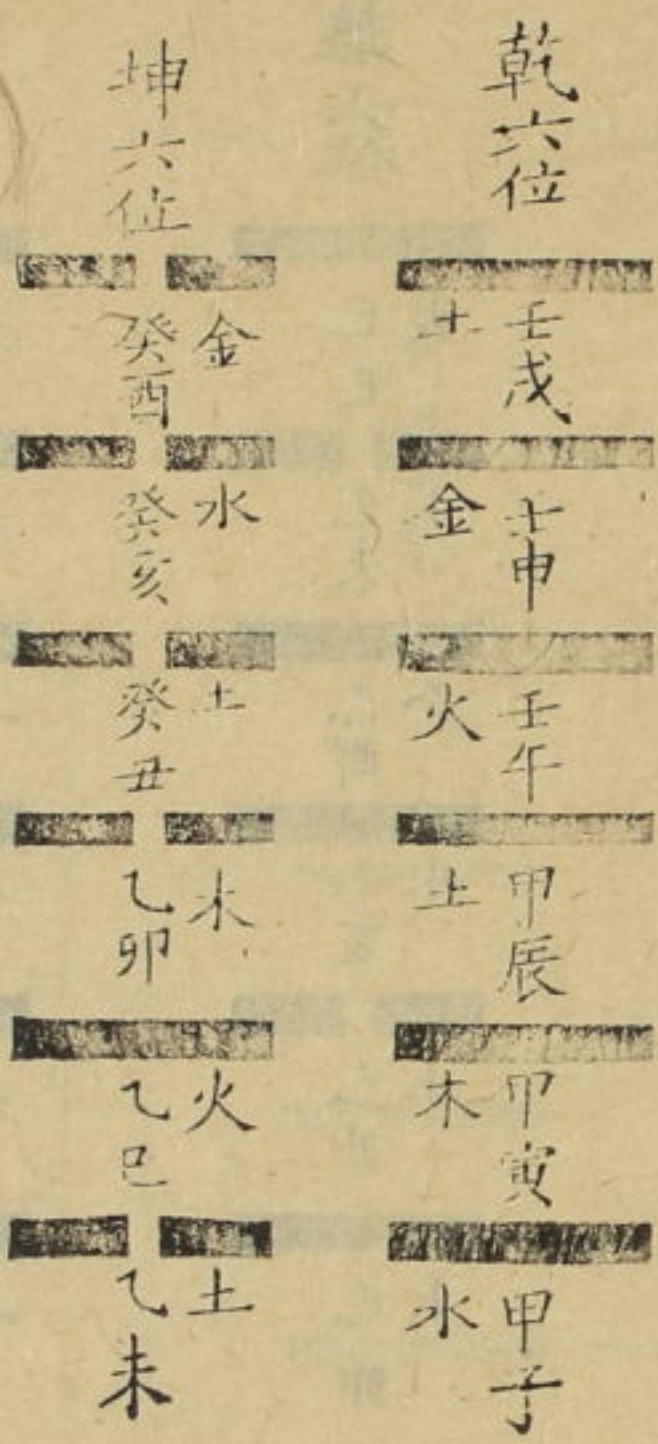 乾六位
壬戌
土
壬申
金
壬午
火
甲辰
土
甲寅
木
甲子
水
坤六位
金
癸酉
水
癸亥
土
癸丑
木
乙卯
火
乙巳
土
乙未